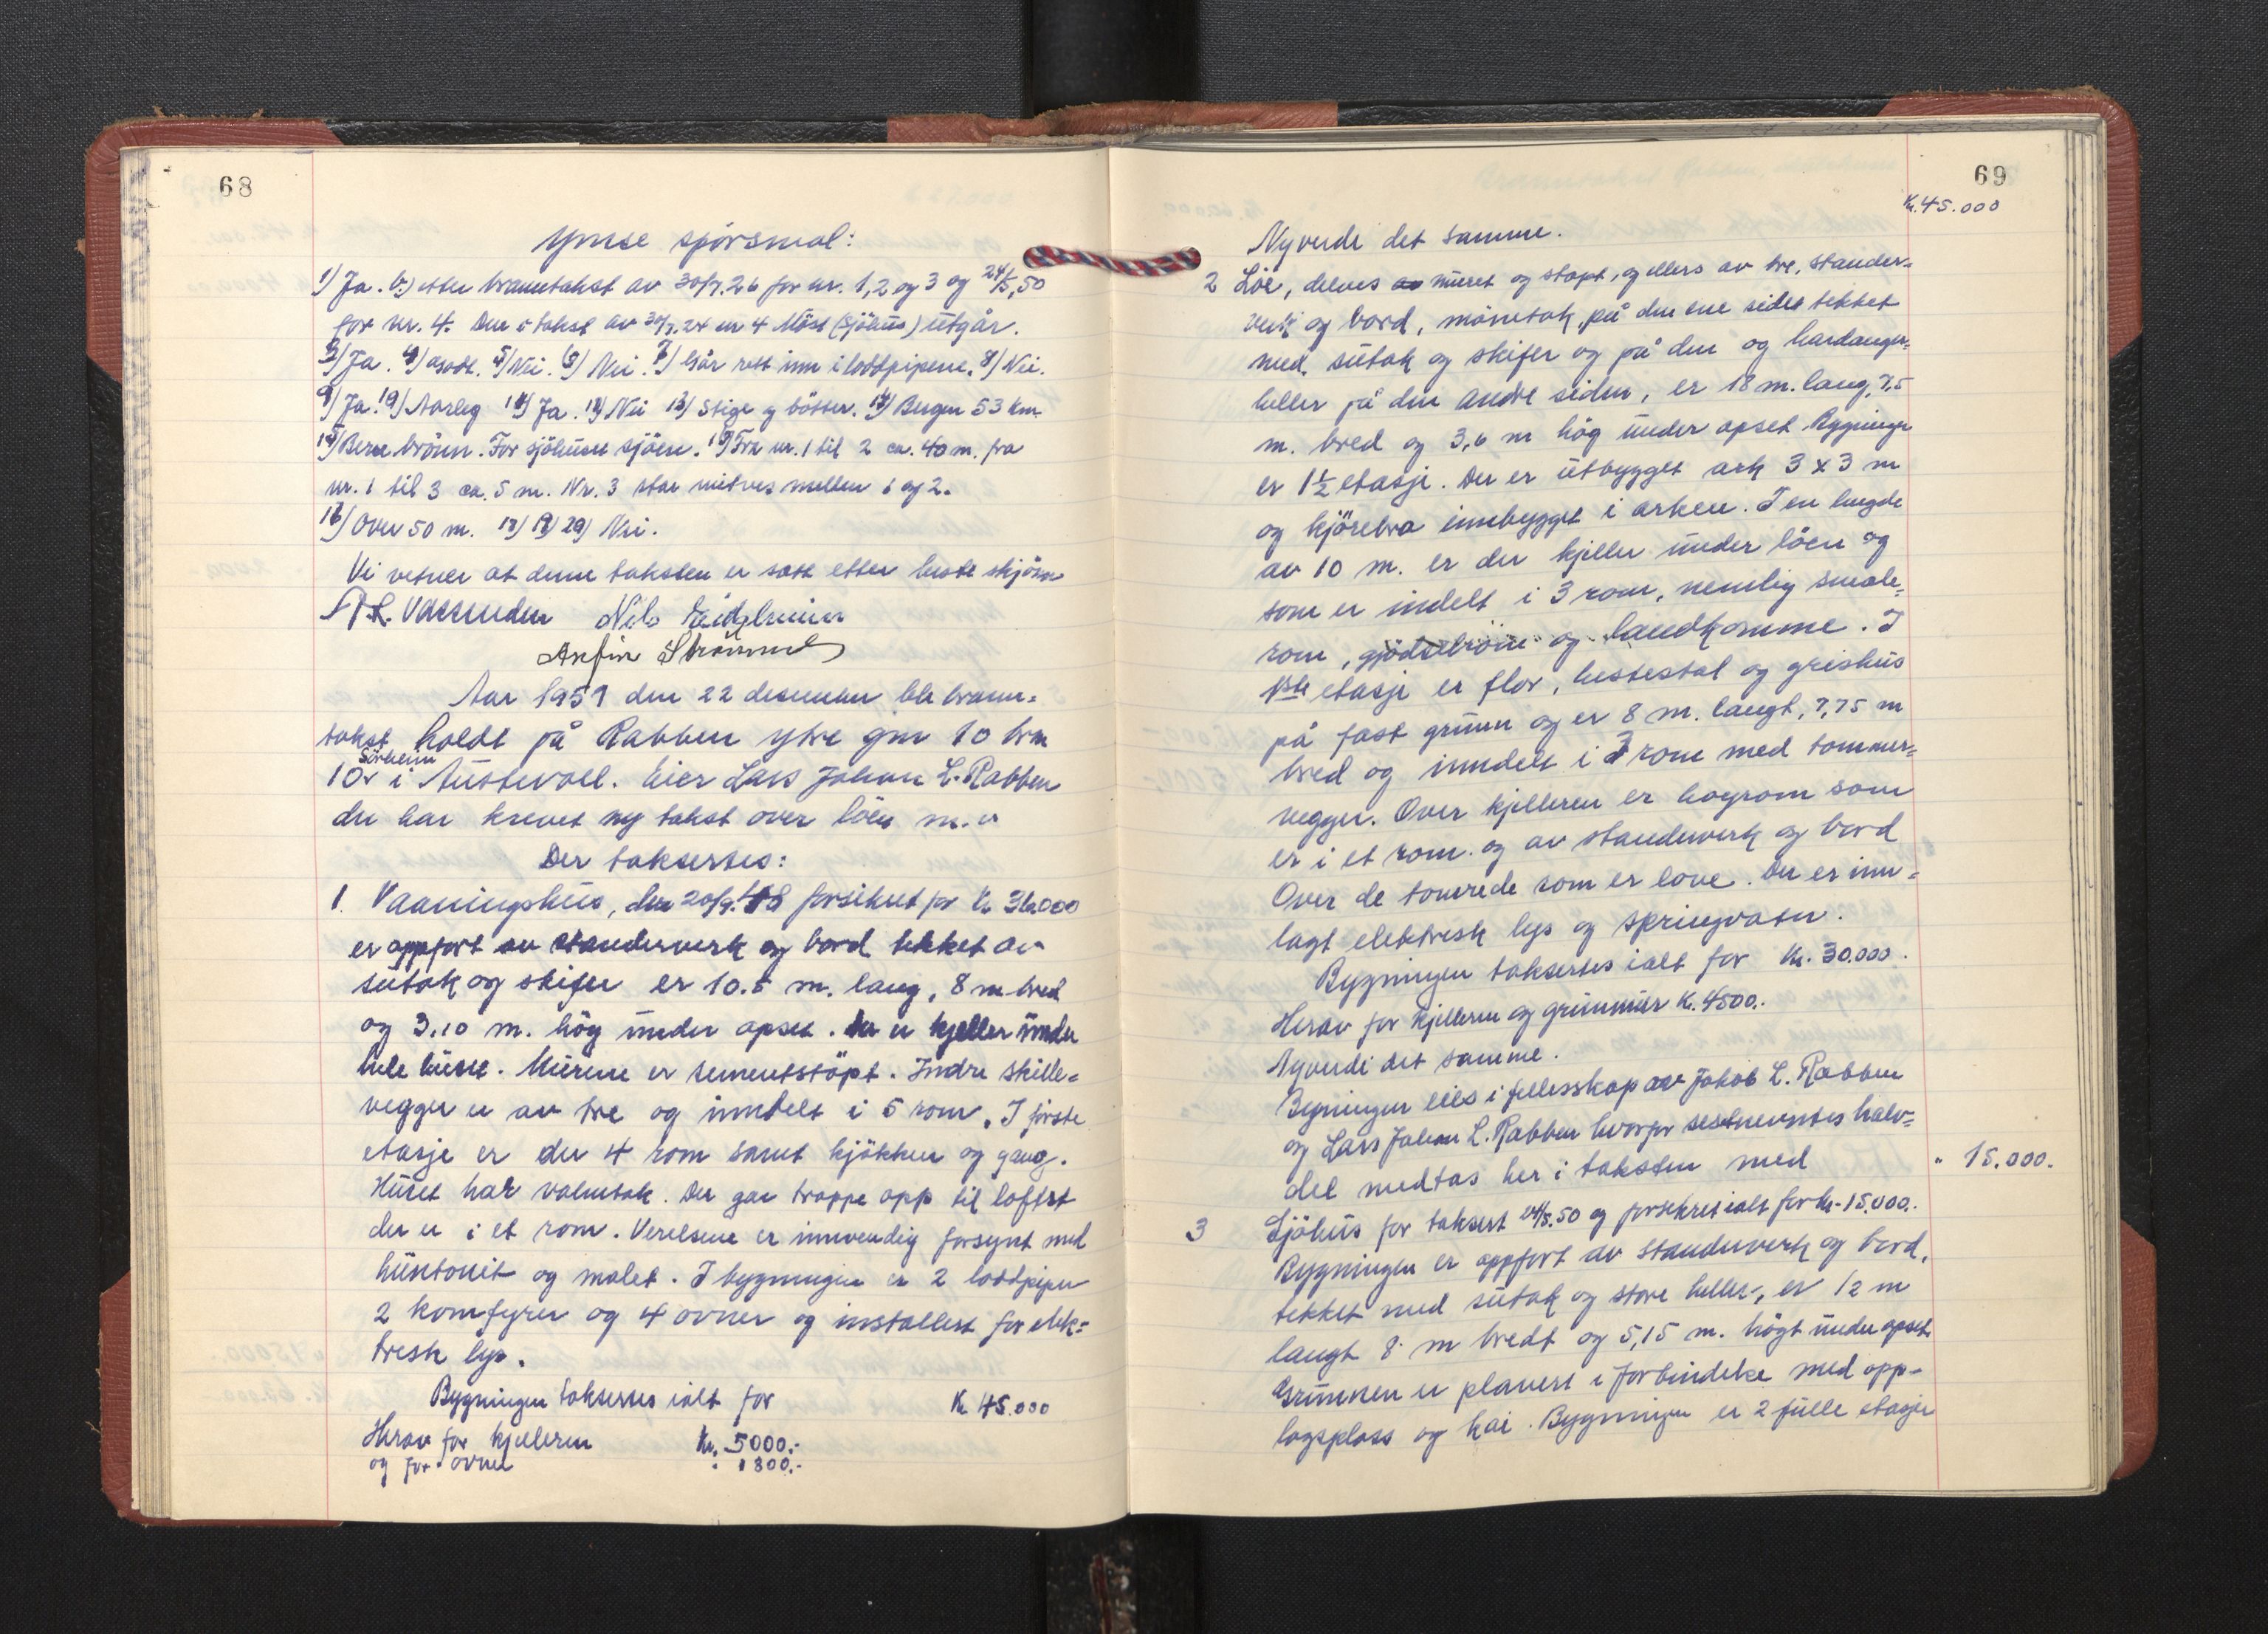 68
Ymse spörsmal:
1) Ja. b.) etter branntakst av 30/7.26 for nr. 1, 2 og 3 og 24/5,50
for nr. 4. Den i takst av 30/7.24 nr 4 (Sjöhus) utgår.
3) Ja. 4) Godt. 5) Nei. 6) Nei. 7) Går rett inn i loddpipene. 8) Nei.
9) Ja. 10) Aarleg 11) Ja. 12) Nei 13) Stige og bötter. 14) Bergen 53 km
15) Berre brönn. For sjöhuset sjöen. Fra nr. 1 til 2 ca. 40 m. fra
nr. 1 til 3 ca. 5 m. Nr. 3 star mellem 1 og 2.
Over 50 m. Nei.
Vi vetner at denne taksten er satt etter beste skjönn
Nils
Arfin
Aar 1951 den 22 desember ble brann-
takst holdt på Rabben ytre gnr 10 brn
10 Sörheim i Austevoll. Eier Lars Johan L. Rabben
der har krevet ny takst over löen m.v
Der takseres:
1. Vaaningshus, den 20/9.48 forsikret for Kr 36.000
er oppfort av standerverk og bord tekket av
sutak og skifer er 10.5 m. lang, 8 m bred
og 3.10 m. hög under opset. Der er kjeller under
hele huset. Murene er sementstöpt. Indre skille-
vegger er av tre og inndelt i 5 rom. I förste
etasje er der 4 rom samt kjökken og gang.
Huset har valmtak. Der gar trappe opp til loftet
der er i et rom. Verelsene er innvendig forsynt med
huntonit og malet. I bygningen er 2 loddpiper
2 komfyrer og 4 ovner og installert for elek-
trisk lys.
Bygningen takseres ialt for Kr 45.000
Herav for kjelleren Kr. 5000.-
og for ovner " 1800.-
69
Kr. 45.000
Nyverde det samme.
2 Löe, delves av muret og stöpt, og ellers av tre, stander-
verk og bord, mönetak, på den ene siden tekket
med sutak og skifer og på den og hardanger-
heller på den andre siden, er 18 m. lang, 7,5
m. bred og 3,6 m hög under opset Bygningen
er 1½ etasje. Der er utbygget ark 3 x 3 m
og kjörebro innbygget i arken. I en lengde
av 10 m. er der kjeller under löen og
som er indelt i 3 rom, nemlig smale-
rom, gjödselbrönn og landkomme. I
1ste etasje er flor, hestestal og grishus
på fast grunn og er 8 m. langt, 7,75 m
bred og inndelt i 3 rom med tömmer-
vegger. Over kjelleren er hoyrom som
er i et rom og av standerverk og bord
Over de tömrede rom er love. Der er inn-
lagt elektrisk lys og springvatn.
Bygningen takseres ialt for Kr. 30.000.
Herav for kjelleren og grunnmur Kr. 4500.
Nyverdi det samme.
Bygningen eies i fellesskap av Jakob L. Rabben
og Lars Johan L. Rabben hvorfor sestnevntes halv-
del medtas her i taksten med " 15.000.
3 Sjöhus for taksert 24/5.50 og forsikret ialt for Kr. 15.000.
Bygningen er oppfort av standerverk og bord,
tekket med sutak og store heller, er 12 m
langt 8 m bredt og 5,15 m. högt under opset.
Grunnen er planert i forbindelse med opp-
lagsplass og kai. Bygningen er 2 fulle etasjer